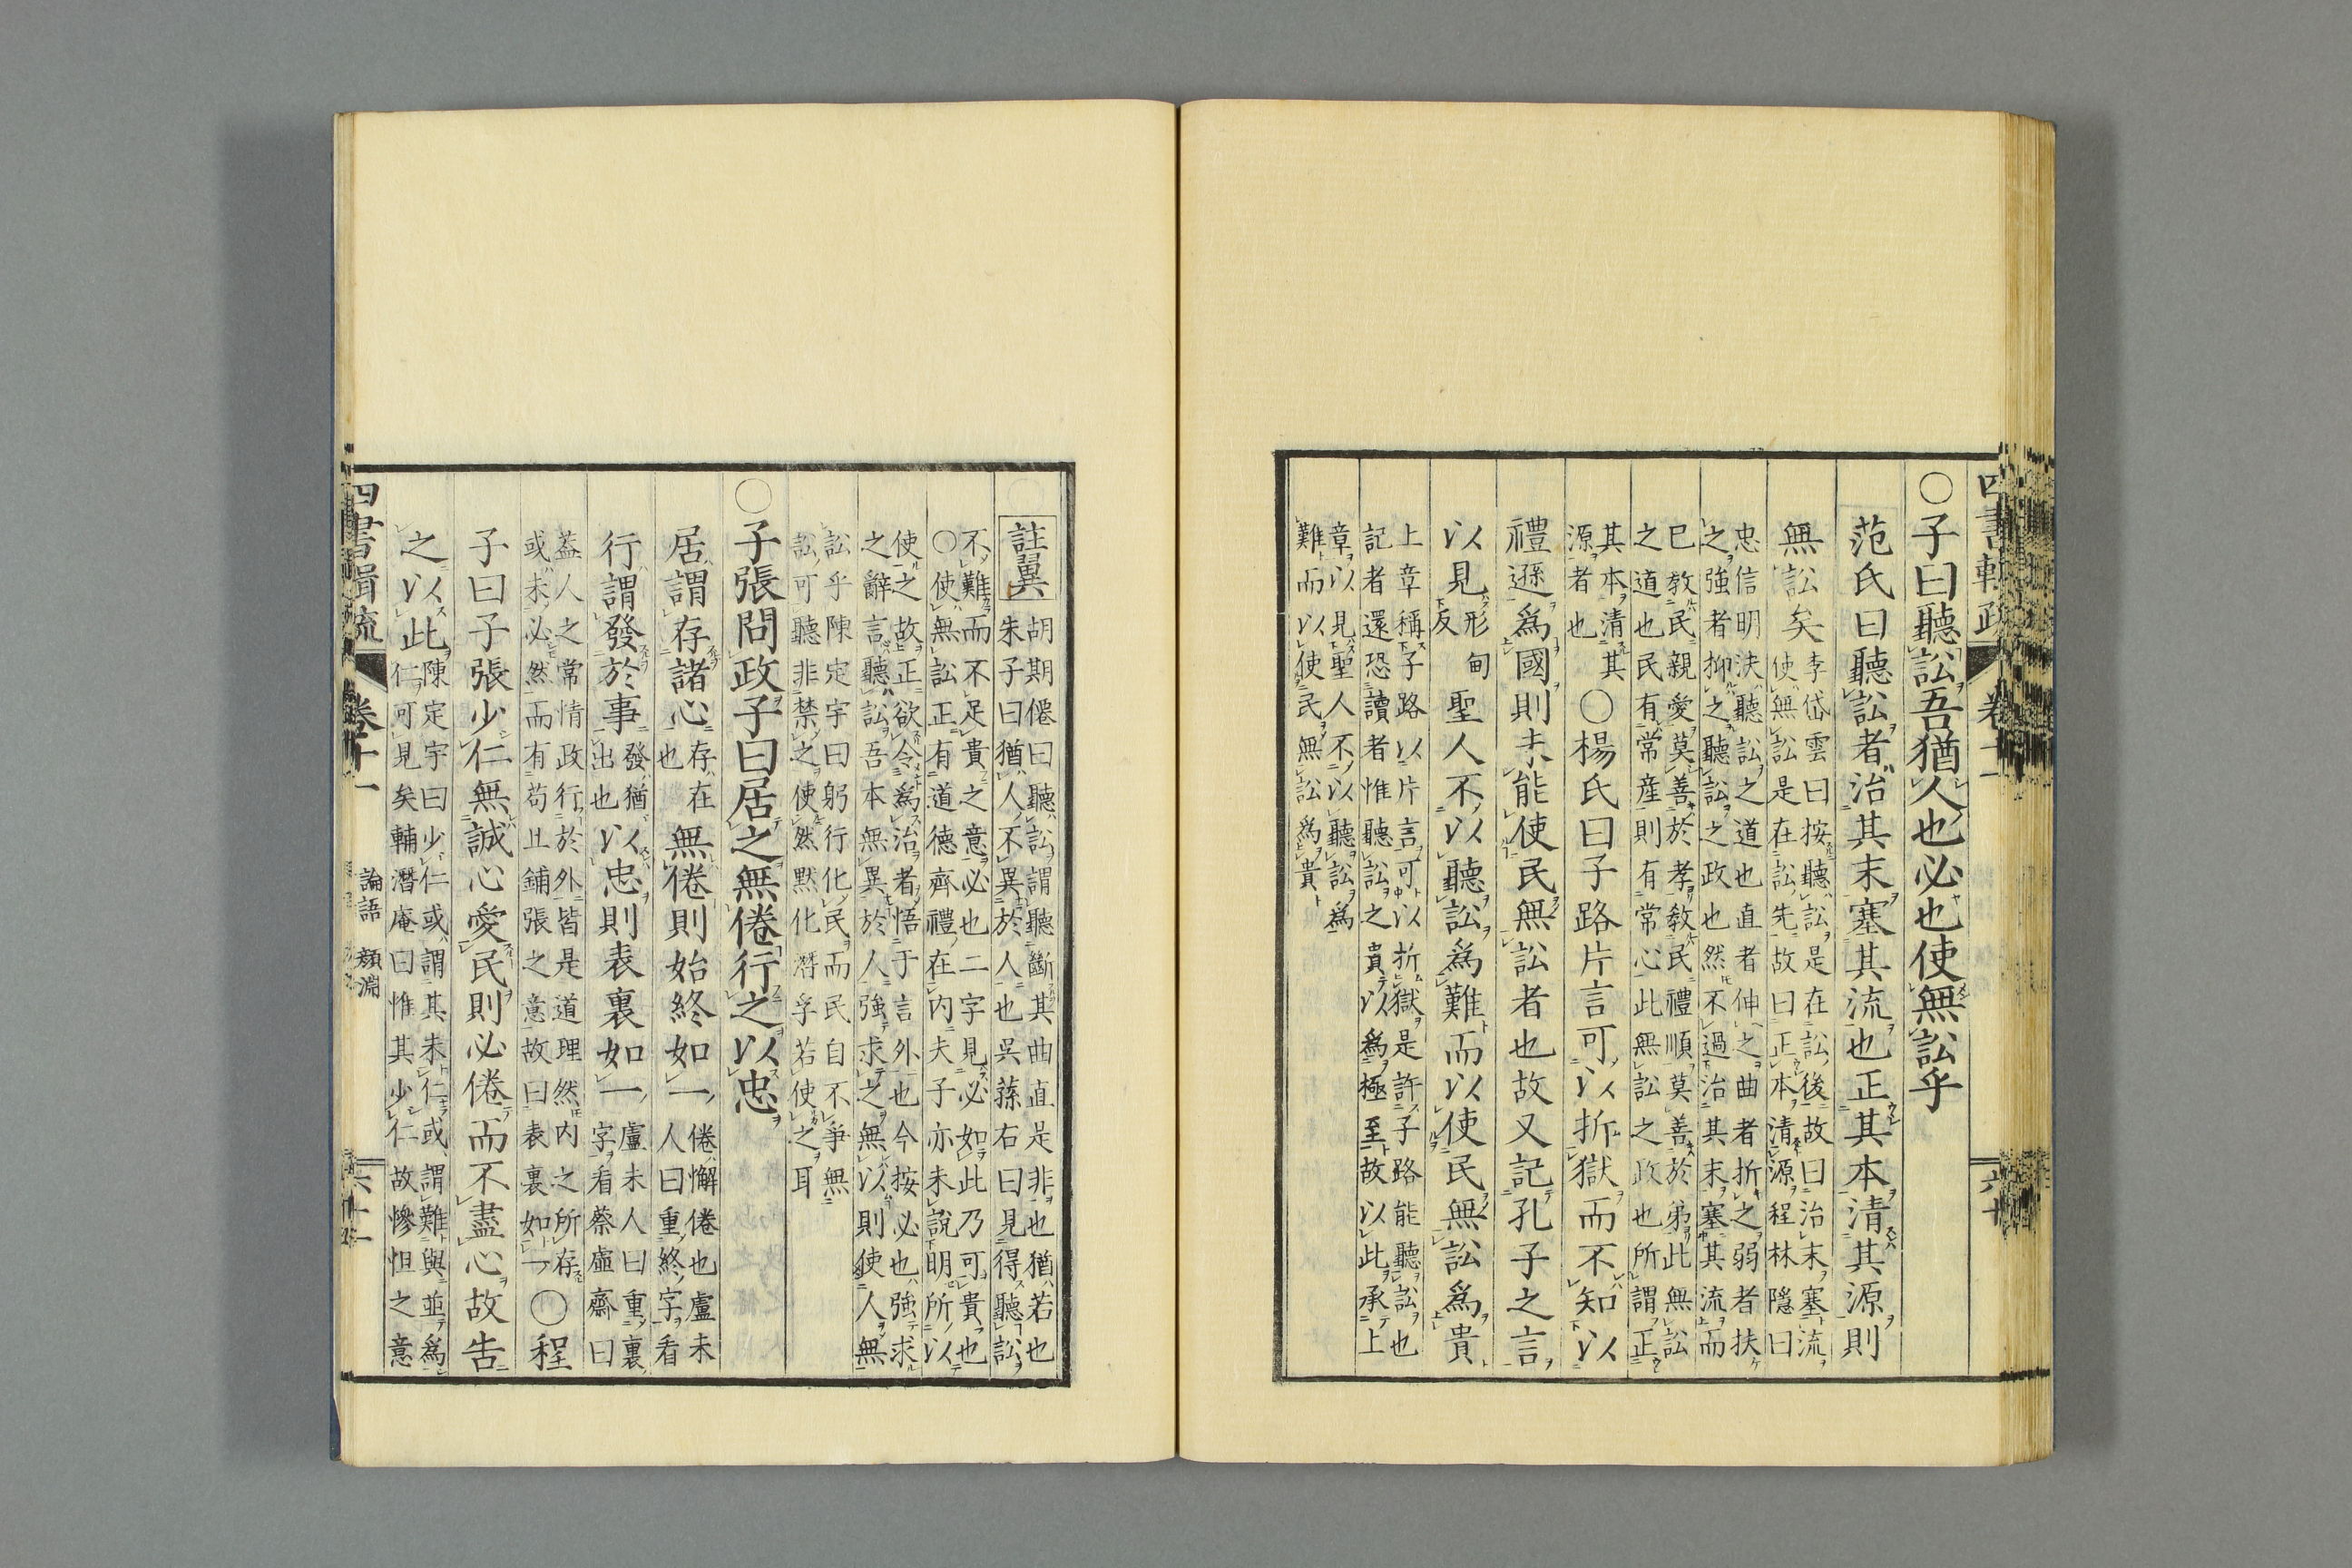 ○子曰聽訟吾猶人也必也使無訟乎
范氏曰聽訟者治其末塞其流也正其本清其源則
無訟矣
李岱雲曰按聽訟是在訟後故曰治末塞流
使無訟是在訟先故曰正本清源程林隱曰
忠信明決聽訟之道也直者伸之曲者折之弱者扶
之強者抑之聽訟之政也然不過治其末塞其流而
已教民親愛莫善於孝教民禮順莫善於弟此無訟
之道也民有常産則有常心此無訟之政也所謂正
其本清其
源者也
○楊氏曰子路片言可以折獄而不知以
禮遜爲國則未能使民無訟者也故又記孔子之言
以見
形甸
反
聖人不以聽訟爲難而以使民無訟爲貴
上章稱子路以片言可以折獄是許子路能聽訟也
記者還恐讀者惟聽訟之貴以爲極至故以此承上
章以見聖人不以聽訟爲
難而以使民無訟爲貴
註翼
胡期僊曰聽訟謂聽斷其曲直是非也猶若也
朱子曰猶人不異於人也吳蓀右曰見得聽訟
不難而不足貴之意必也二字見必如此乃可貴也
○使無訟正有道德齊禮在内夫子亦未說明所以
使之故正欲令爲治者悟于言外也今按必也強求
之辭言聽訟吾本無異於人強求之無以則使人無
訟乎陳定宇曰躬行化民而民自不爭無
訟可聽非禁之使然默化潛孚若使之耳
○子張問政子曰居之無倦行之以忠
居謂存諸心
存在
也
無倦則始終如一
倦懈倦也盧未
人曰重終字看
行謂發於事
發猶
出也
以忠則表裏如一
盧未人曰重裏
字看蔡虛齋曰
蓋人之常情政行於外皆是道理然内之所存
或未必然而有苟且鋪張之意故曰表裏如一
○程
子曰子張少仁無誠心愛民則必倦而不盡心故告
之以此
陳定宇曰少仁或謂其未仁或謂難與並爲
仁可見矣輔潛庵曰惟其少仁故慘怛之意
四書
卷十一
論語 顏淵